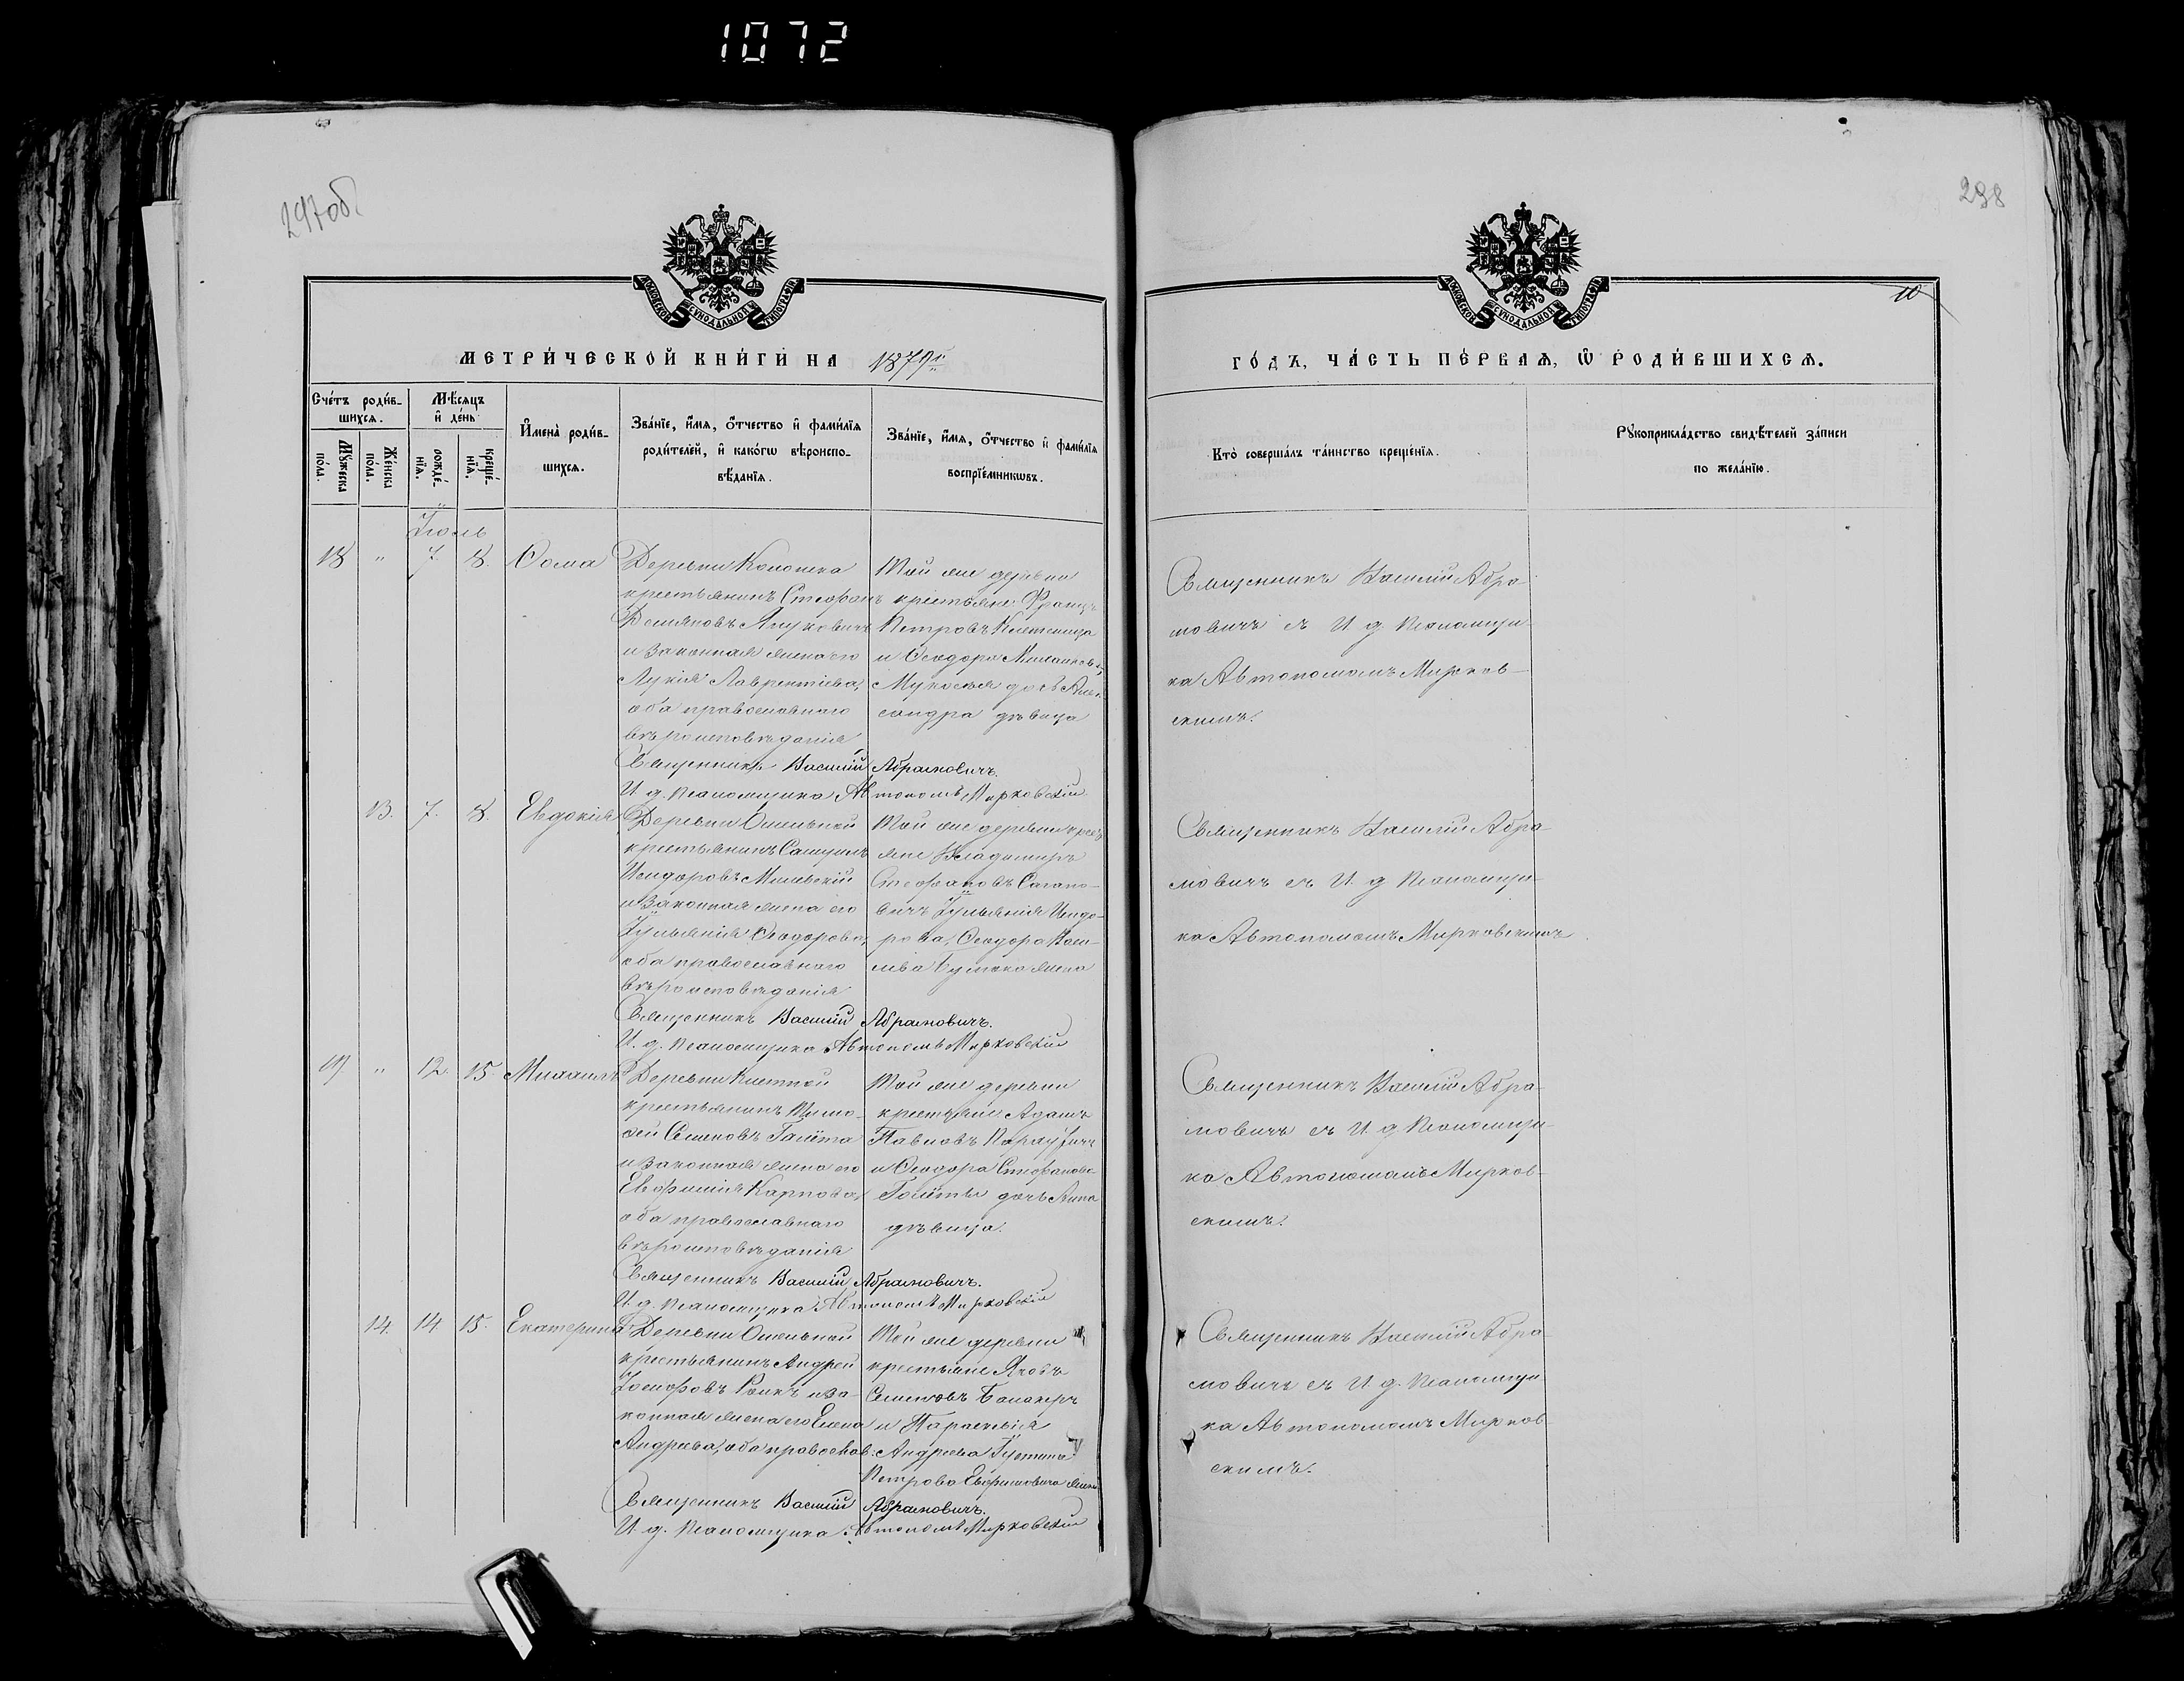 1072
297об
298
10
МОСКОВСКОЙ СѴНОДАЛЬНОЙ ТИПОГРАФІИ
МОСКОВСКОЙ СѴНОДАЛЬНОЙ ТИПОГРАФІИ
МЕТРИ́ЧЕСКОЙ КНИ́ГИ НА 1879 г.
ГО́ДЪ, ЧА́СТЬ ПЕ́РВАЯ, Ѡ РОДИ́ВШИХСЯ.
Сче́тъ роди́в-
шихся.
Мѣ́сяцъ
и де́нь
Му́жеска
по́ла.
Же́нска
по́ла.
рожде́-
нїя.
креще́-
нїя.
Имена̀ роди́в-
шихся.
Зва́нїе, и́мя, о́тчество и фами́лїя
роди́телей, и како́гѡ вѣроиспо-
вѣ́данїя.
Зва́нїе, и́мя, о́тчество и фами́лїя
воспрїе́мникѡвъ.
Кто̀ соверша́лъ та́инство креще́нїя.
Рукоприкла́дство свидѣ́телей за́писи
по жела́нїю.
Іюль
18 " 7. 8. Ѳома
Деревни
крестьянинъ Стефанъ
Демяновъ
и законная жена его
Лукія Лаврентіева,
оба православнаго
вѣроисповѣданія
Той же деревни
крестьяне: Францъ
Петровъ
и Ѳеодора
дочь Алек-
сандра дѣвица
Священникъ Василій Абрамовичъ.
И. д. Псаломщика Автономъ Мирковскій
Священникъ Василій Абра-
мовичъ съ И. д. Псаломщи-
ка Автономомъ Мирков-
скимъ.
13. 7. 8. Евдокія
Деревни
крестьянинъ Самуилъ
Исидоровъ Милевскій
и законная жена его
Іуліанія Ѳеодорова,
оба православнаго
вѣроисповѣданія
Той же деревни крес
яне Владимиръ
Стефановъ Сагано-
вичъ Іуліанія Исидо-
рова, Ѳеодора Васи-
льева жена
Священникъ Василій Абрамовичъ.
И. д. Псаломщика Автономъ Мирковскій
Священникъ Василій Абра-
мовичъ съ И. д. Псаломщи-
ка Автономомъ Мирковскимъ
19 " 12. 15. Михаилъ
Деревни
крестьянинъ Тимо-
ѳей Семеновъ
и законная жена его
Евфимія Карпова,
оба православнаго
вѣроисповѣданія
Той же деревни
крестьяне Адамъ
Павловъ
и Ѳеодора Стефанова
дочь Анна
дѣвица.
Священникъ Василій Абрамовичъ.
И. д. Псаломщика Автономъ Мирковскій
Священникъ Василій Абра-
мовичъ съ И. д. Псаломщи-
ка Автономомъ Мирков-
скимъ.
14. 14. 15. Екатерина
Деревни
крестьянинъ Андрей
Іосифовъ и за-
конная жена его Елена
Андреева, оба православ.
Той же деревни
крестьяне Яковъ
Семеновъ
и Параскевія
Андреева
Петрова жена
Священникъ Василій Абрамовичъ.
И. д. Псаломщика Автономъ Мирковскій
Священникъ Василій Абра-
мовичъ съ И. д. Псаломщи-
ка Автономомъ Мирков-
скимъ.